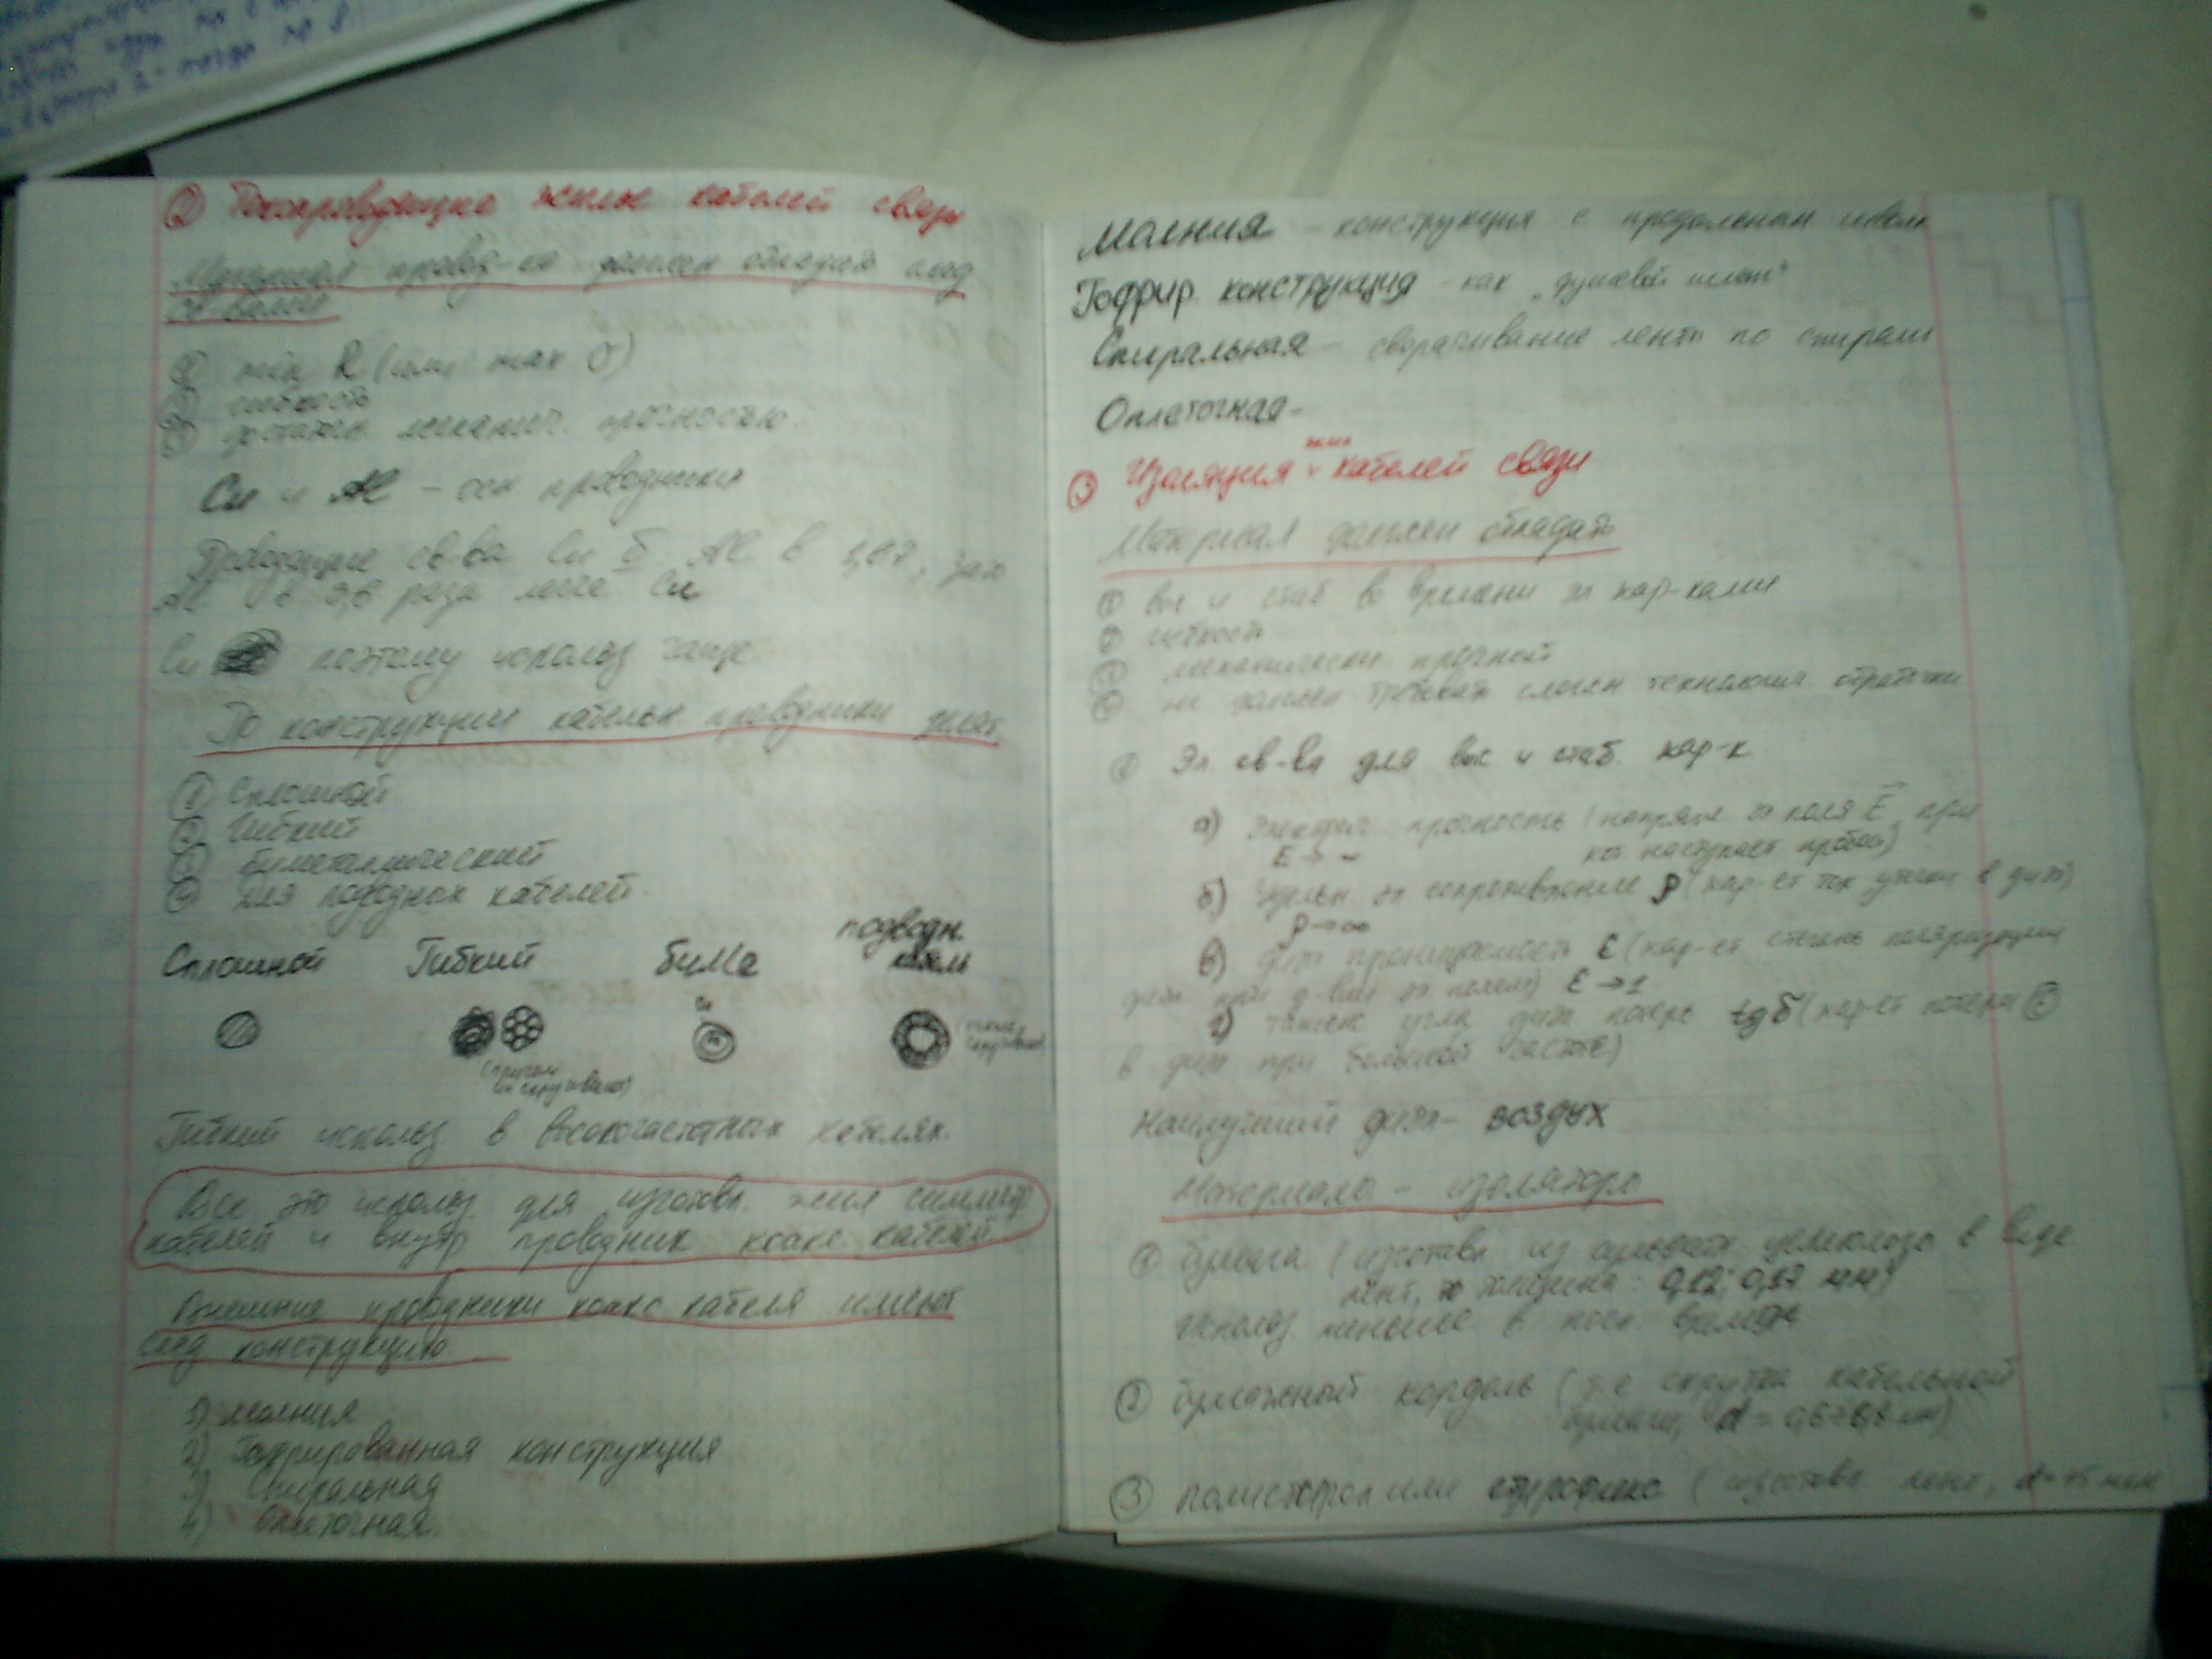 ② Токопроводящие жилы кабелей связи
Материал провод-ка должен обладать след
св-вами
① min R (или max σ)
② гибкость
③ достаточн. механич. прочностью.
Cu и Al – осн. проводники
Проводящие св-ва Cu б Al в 1,67, зато
Al в 3,3 раза легче Cu
Cu поэтому использ чаще
По конструкции кабельн. проводники делят
① Сплошной
② Гибкий
③ биметаллический
④ для подводных кабелей.
Сплошной Гибкий биМе подводн. кабель
Cu
Гибкий использ в высокочастотных кабелях.
Все это использ. для изготовл. жил симметр
кабелей и внутр проводник коакс кабелей
Внешние проводники коакс кабеля имеют
след конструкцию
1) молния
2) Гофрированная конструкция
3) Спиральная
4) Оплеточная
Молния – конструкция с продольным швом
Гофрир. конструкция – как „душевой шланг"
Спиральная – сворачивание ленты по спирали
Оплеточная –
жил
③ Изоляция кабелей связи
Материал должен обладать
① выс и стаб во времени эл хар-ками
② гибкость
③ механически прочной
④ не должен требовать сложн технологич. обработки
① Эл. св-ва для выс и стаб. хар-к
а) Электрич. прочность (напряж эл поля E, при
E → ∞ кот наступает пробой)
б) Удельн эл сопротивление ρ (хар-ет ток утечки в диэл)
ρ → ∞
в) диэл проницаемость ε (хар-ет степень поляризации
диэл. при д-вии эл полем) ε → 1
г) тангенс угла диэл потерь tgδ (хар-ет потери
в диэл при большой частоте)
Наилучший диэл – воздух
Материалы – изоляторы
① бумага (изготавл из сульфатн целлюлозы в виде
лент, толщина: 0,12; 0,17 мм)
Использ. меньше в посл. время
② бумажной кордель (т.е. скрутка кабельной
бумаги,
③ полистирол или стирофлекс (изготавл. лент,